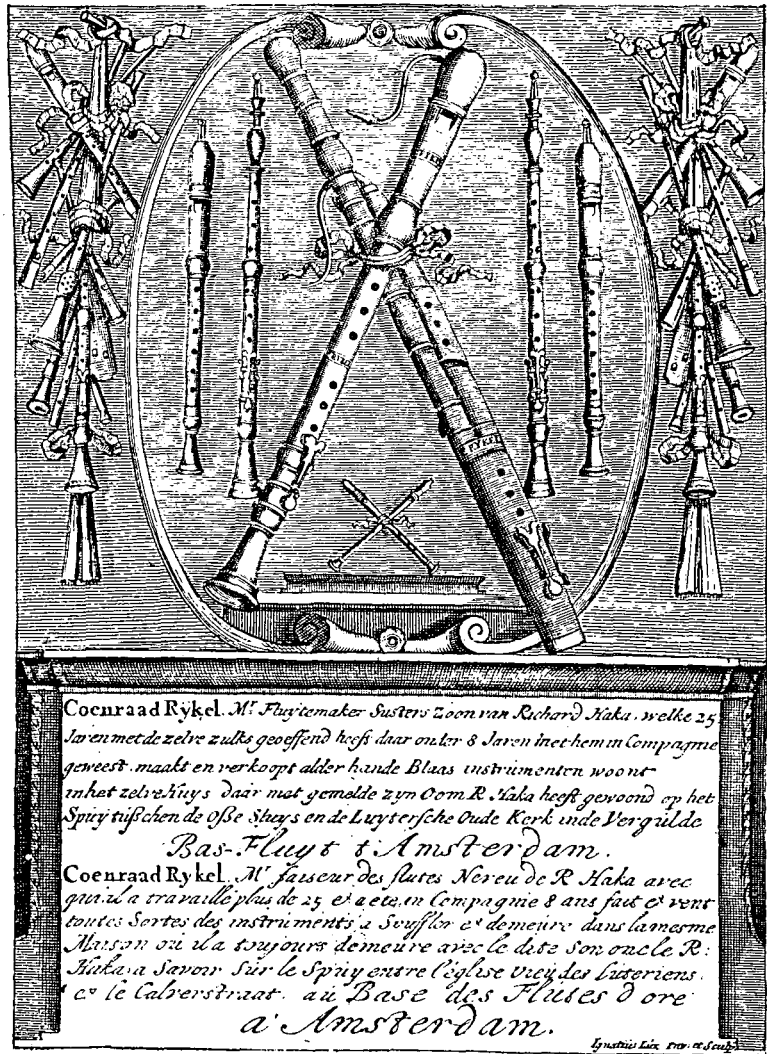 RYKEL
RYKEL
RYKEL
Coenraad Rykel. Mr. Fluytemaker Susters Zoon van Richard Haka. welke 25
Jaren met de zelve zulks geoeffend heeft daar onder 8 Jaren met hem in Compagnie
geweest. maakt en verkoopt alder hande Blaas instrumenten woont
in het zelve Huys daar met gemelde zyn Oom R. Haka heeft gewoond op het
Spuy tusschen de Osse Sluys en de Luytersche Oude Kerk inde Vergulde
Bas-Fluyt t'Amsterdam.
Coenraad Rykel. Mr. faiseur des flutes Neveu de R Haka avec
qui il a travaillé plus de 25 et a ete, en Compagnie 8 ans fait et vent
toutes Sortes des instruments a Souffler et demeure dans la mesme
Maison ou il a toujours demeure avec le dite Son oncle R:
Haka, a Savoir Sur le Spuy entre l'église vieij des luteriens.
et le Calverstraat. au Base des Flutes d'ore
a' Amsterdam.
Ignatius Lux inv. et Sculp.